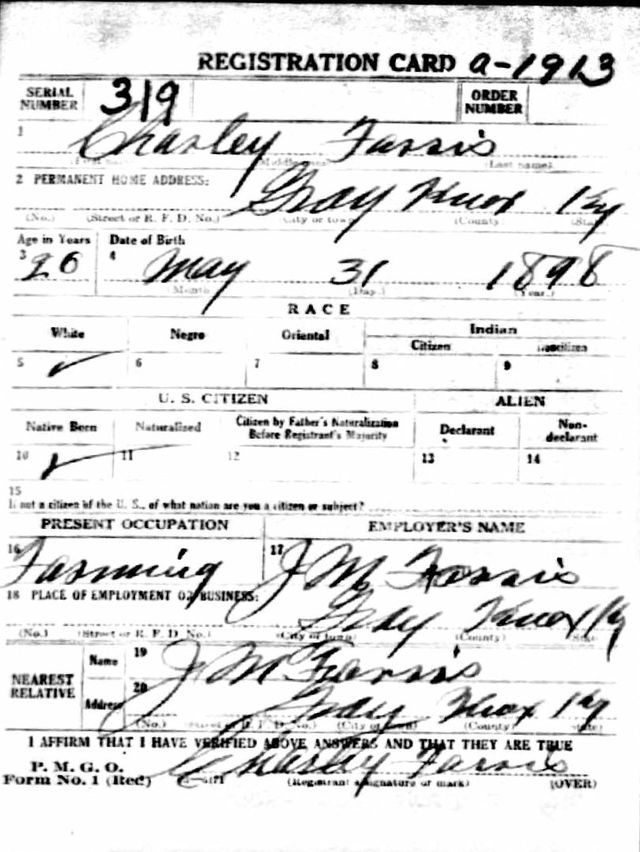 REGISTRATION CARD a-1913
SERIAL NUMBER 319 ORDER NUMBER
1 Charley Farris
(Middle name) (Last name)
2 PERMANENT HOME ADDRESS: Gray Knox Ky
(No.) (Street or R. F. D. No.) (City or town) (County) (State)
Age in Years Date of Birth
3 20 4 May 31 1898
(Month) (Day) (Year)
RACE
White Negro Oriental Indian
Citizen Noncitizen
5 ✓ 6 7 8 9
U. S. CITIZEN ALIEN
Native Born Naturalized Citizen by Father's Naturalization Before Registrant's Majority Declarant Non-declarant
10 ✓ 11 12 13 14
15
If not a citizen of the U. S., of what nation are you a citizen or subject?
PRESENT OCCUPATION EMPLOYER'S NAME
16 Farming 17 J M Farris
18 PLACE OF EMPLOYMENT OR BUSINESS: Gray Knox Ky
(No.) (Street or R. F. D. No.) (City or town) (County) (State)
NEAREST RELATIVE
Name 19 J M Farris
Address 20 Gray Knox Ky
(No.) (Street or R. F. D. No.) (City or town) (County) (State)
I AFFIRM THAT I HAVE VERIFIED ABOVE ANSWERS AND THAT THEY ARE TRUE
P. M. G. O.
Form No. 1 (Red) Charley Farris
(Registrant's signature or mark) (OVER)